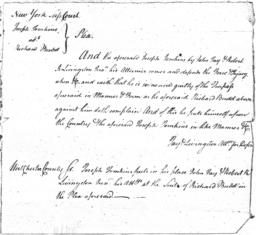 New York Sup Court
Joseph Tomkins
ads
Richard Bundet
Plea.
And the aforesaid Joseph Tomkins by John Jay & Robert
R Livingston Junr his Attornies comes and defends the Force & Injury
when &c and saith that he is not guilty of the Trespass
aforesaid in Manner & Form as the aforesaid Richard above
against him doth complain And of this he puts himself upon
the Country & the aforesaid Joseph Tomkins in like Manner &c
Jay & Livingston Attys for
Westchester County Ss. Joseph Tomkins puts in his place John Jay & Robert R
Livingston Junr his Attys at the Suit of Richard
in the Plea aforesaid